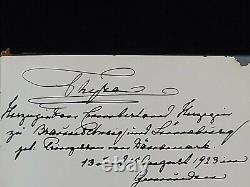 Thyra
Herzogin von Cumberland, Herzogin
zu Braunschweig und Lüneburg
geb. Prinzessin von Dänemark.
August 1923 in
Gmunden